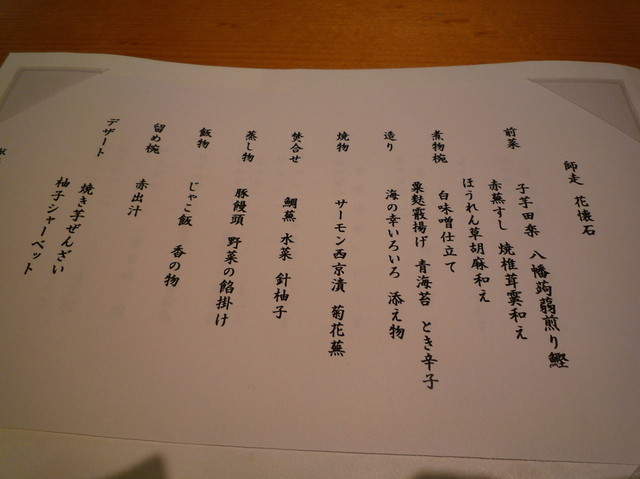 師走 花懐石
前菜
子芋田楽 八幡蒟蒻煎り鰹
赤蕪すし 焼椎茸霙和え
ほうれん草胡麻和え
煮物椀
白味噌仕立て
粟麩霰揚げ 青海苔 とき辛子
造り
海の幸いろいろ 添え物
焼物
サーモン西京漬 菊花蕪
焚合せ
鯛蕪 水菜 針柚子
蒸し物
豚饅頭 野菜の餡掛け
飯物
じゃこ飯 香の物
留め椀
赤出汁
デザート
焼き芋ぜんざい
柚子シャーベット